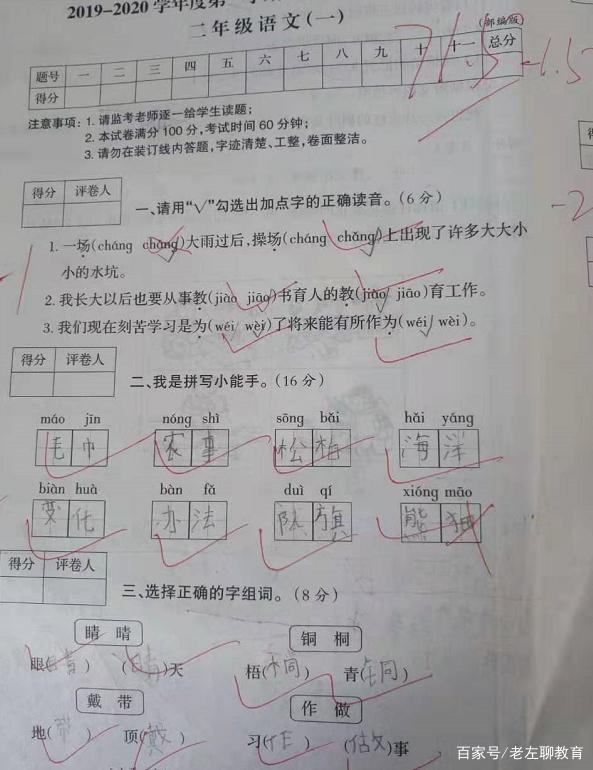 2019-2020学年度第
二年级语文(一)
(部编版)
题号 一 二 三 四 五 六 七 八 九 十 十一 总分
得分
71.5
-1.5
注意事项：1. 请监考老师逐一给学生读题；
2. 本试卷满分100分，考试时间60分钟；
3. 请勿在装订线内答题，字迹清楚、工整，卷面整洁。
得分 评卷人
一、请用“√”勾选出加点字的正确读音。(6分)
-2
1. 一场(cháng chǎng)大雨过后，操场(cháng chǎng)上出现了许多大大小
小的水坑。
-1
2. 我长大以后也要从事教(jiào jiāo)书育人的教(jiào jiāo)育工作。
3. 我们现在刻苦学习是为(wéi wèi)了将来能有所作为(wéi wèi)。
得分 评卷人
二、我是拼写小能手。(16分)
máo jīn nóng shì sōng bǎi hǎi yáng
毛巾 农事 松柏 海洋
biàn huà bàn fǎ duì qí xióng māo
变化 办法 队旗 熊猫
得分 评卷人
三、选择正确的字组词。(8分)
睛 晴 铜 桐
眼(睛) (晴)天 梧(桐) 青(铜)
戴 带 作 做
地(带) 顶(戴) 习(作) (做)事
百家号/老左聊教育